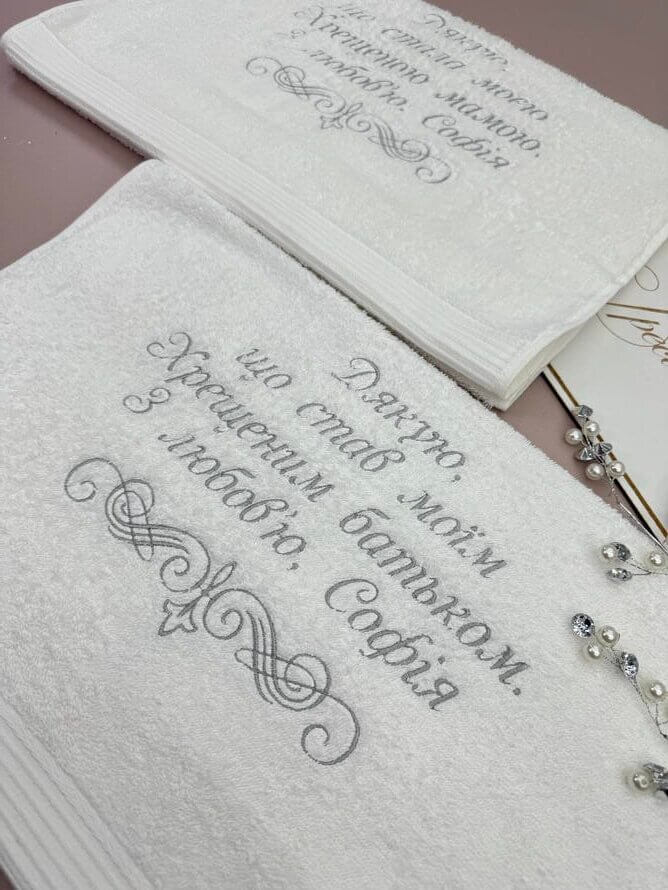 Дякую,
що стала моєю
Хрещеною мамою.
З любов'ю, Софія
Дякую,
що став моїм
Хрещеним батьком.
З любов'ю, Софія